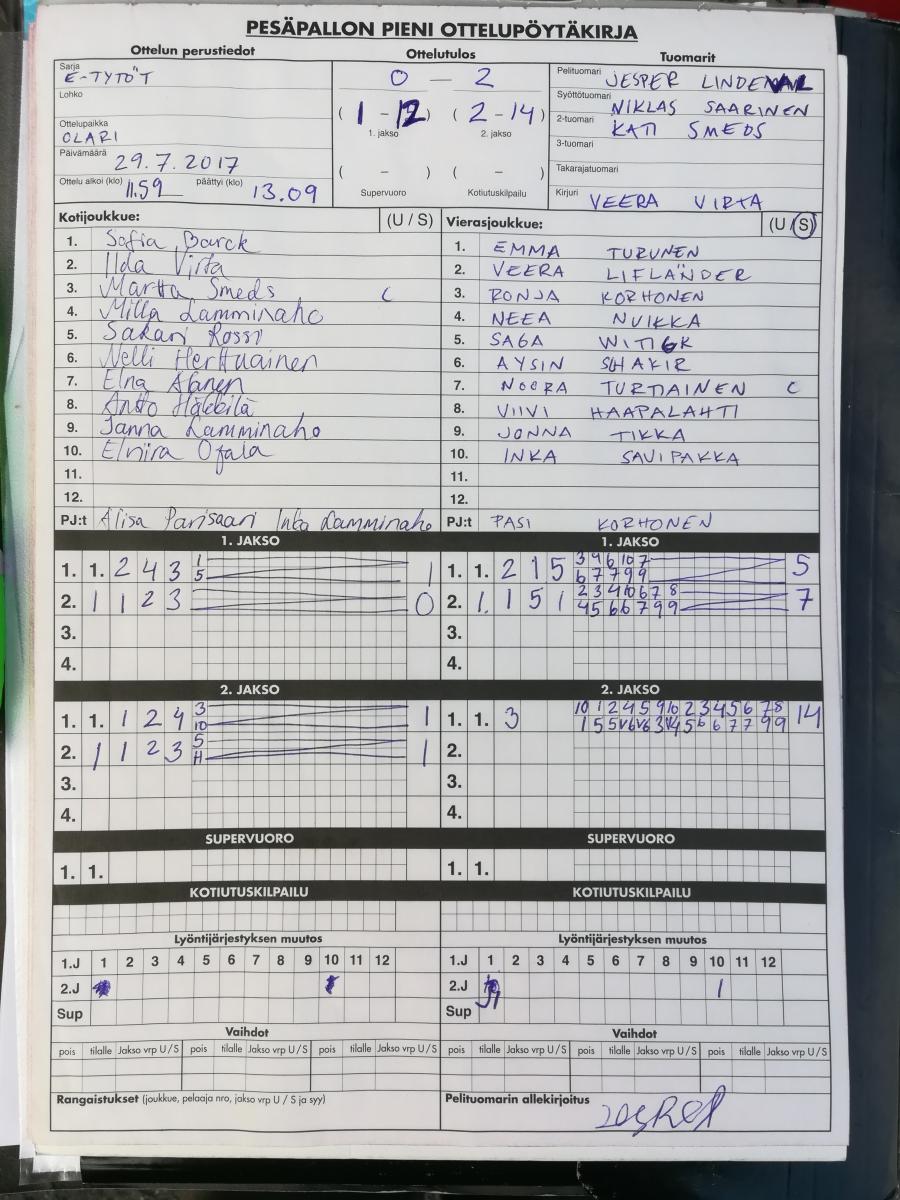 PESÄPALLON PIENI OTTELUPÖYTÄKIRJA
Ottelun perustiedot
Sarja
E-TYTÖT
Lohko
Ottelupaikka
OLARI
Päivämäärä
29.7.2017
Ottelu alkoi (klo) 11.59 päättyi (klo) 13.09
Ottelutulos
0 — 2
(1 - 12) (2 - 14)
1. jakso 2. jakso
( - ) ( - )
Supervuoro Kotiutuskilpailu
Tuomarit
Pelituomari JESPER
Syöttötuomari NIKLAS SAARINEN
2-tuomari KATI SMEDS
3-tuomari
Takarajatuomari
Kirjuri VEERA VIRTA
Kotijoukkue: (U / S)
1. Sofia Barck
2. Ilda Virta
3. Martta Smeds C
4. Milla Lamminaho
5. Sakari Rossi
6. Nelli Herttuainen
7. Elna Alanen
8. Antto Häkkilä
9. Janna Lamminaho
10. Elmira Ojala
11.
12.
PJ:t Alisa Parisaari Inka Lamminaho
Vierasjoukkue: (U / S)
1. EMMA TURUNEN
2. VEERA LIFLÄNDER
3. RONJA KORHONEN
4. NEEA NUIKKA
5. SAGA
6. AYSIN SHAKIR
7. NOORA TURTIAINEN C
8. VIIVI HAAPALAHTI
9. JONNA TIKKA
10. INKA SAVIPAKKA
11.
12.
PJ:t PASI KORHONEN
1. JAKSO
1. 1. 2 4 3 1 1
5
2. 1 1 2 3 0
3.
4.
1. JAKSO
1. 1. 2 1 5 3 4 6 10 7 5
6 7 7 9 9
2. 1. 1 5 1 2 3 4 10 6 7 8 7
4 5 6 6 7 9 9
3.
4.
2. JAKSO
1. 1. 1 2 4 3 1
10
2. 1 1 2 3 5 1
H
3.
4.
2. JAKSO
1. 1. 3 10 1 2 4 5 9 10 2 3 4 5 6 7 8 14
2.
3.
4.
SUPERVUORO
1. 1.
SUPERVUORO
1. 1.
KOTIUTUSKILPAILU
KOTIUTUSKILPAILU
Lyöntijärjestyksen muutos
1.J 1 2 3 4 5 6 7 8 9 10 11 12
2.J
Sup
Lyöntijärjestyksen muutos
1.J 1 2 3 4 5 6 7 8 9 10 11 12
2.J 1
Sup
Vaihdot
pois tilalle Jakso vrp U/S pois tilalle Jakso vrp U/S pois tilalle Jakso vrp U/S
Vaihdot
pois tilalle Jakso vrp U/S pois tilalle Jakso vrp U/S pois tilalle Jakso vrp U/S
Rangaistukset (joukkue, pelaaja nro, jakso vrp U / S ja syy)
Pelituomarin allekirjoitus